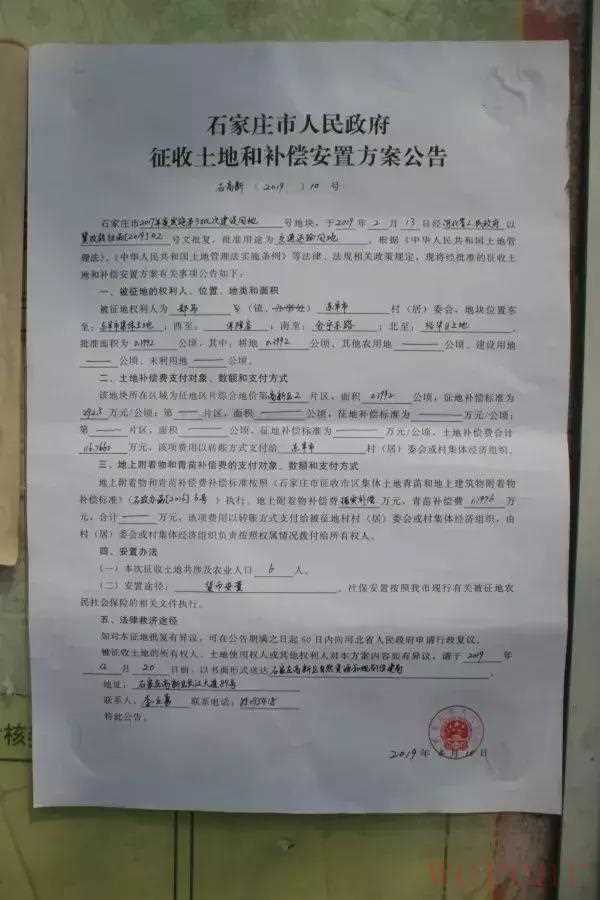 石家庄市人民政府
征收土地和补偿安置方案公告
石高新（2019）10 号
石家庄市2017年度第 批次建设用地 号地块，于2019年2月13日经河北省人民政府以
冀政转征函[2019]02 号文批复，批准用途为交通运输用地。根据《中华人民共和国土地管
理法》、《中华人民共和国土地管理法实施条例》等法律、法规相关政策规定，现将经批准的征收土
地和补偿安置方案有关事项公告如下：
一、被征地的权利人、位置、地类和面积
被征地权利人为 郄马 乡（镇、 ） 东莘市 村（居）委会，地块位置东
至：东莘市集体土地；西至： ；南至： 东路；北至： 土地
批准面积为 0.1992 公顷，其中：耕地 0.1992 公顷、其他农用地 公顷、建设用地
公顷、未利用地 公顷。
二、土地补偿费支付对象、数额和支付方式
该地块所在区域为征地区片综合地价第高新区2 片区，面积 0.1992 公顷，征地补偿标准为
292.5 万元/公顷；第 片区，面积 公顷，征地补偿标准为 万元/公顷；
第 片区，面积 公顷，征地补偿标准为 万元/公顷。土地补偿费合计
万元，该项费用以转账方式支付给 东莘市 村（居）委会或村集体经济组织。
三、地上附着物和青苗补偿费的支付对象、数额和支付方式
地上附着物和青苗补偿费补偿标准按照《石家庄市征收市区集体土地青苗和地上建筑物附着物
补偿标准》（石政办函[2016] 6号）执行。地上附着物补偿费据实补偿万元，青苗补偿费 万
元，合计 万元，该项费用以转账方式支付给被征地村村（居）委会或村集体经济组织，由
村（居）委会或村集体经济组织负责按照权属情况拨付给所有权人。
四、安置办法
（一）本次征收土地共涉及农业人口 6 人。
（二）安置途径： 货币安置 ，社保安置按照我市现行有关被征地农
民社会保险的相关文件执行。
五、法律救济途径
如对本征地批复有异议，可在公告期满之日起 60 日内向河北省人民政府申请行政复议。
被征收土地的所有权人、土地使用权人或其他权利人对本方案内容如有异议，请于 2019 年
月 20 日前，以书面形式送达石家庄高新区自然资源和规划管理局
地址：石家庄高新区长江大道89号
联系人： 联系电话：
特此公告。
2019年 月10日